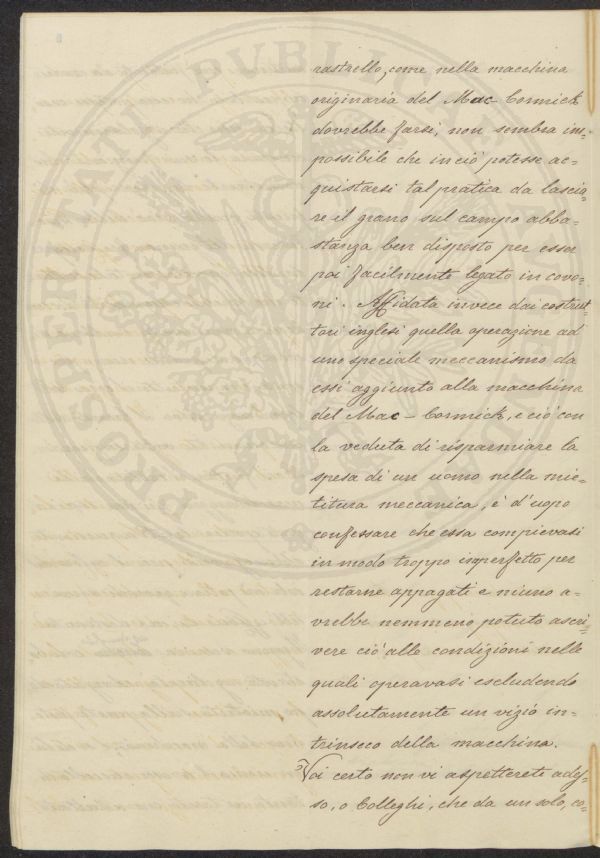 PROSPERITATI PUBLICAE AUGENDAE
rastrello, come nella macchina
originaria del Mac-Cormick
dovrebbe farsi, non sembra im-
possibile che in ciò potesse ac-
quistarsi tal pratica da lascia-
re il grano sul campo abba-
stanza ben disposto per esser
poi facilmente legato in covo-
ni. Affidata invece dai costrut-
tori inglesi quella operazione ad
uno speciale meccanismo da
essi aggiunto alla macchina
del Mac-Cormick, e ciò con
la veduta di risparmiare la
spesa di un uomo nella mie-
titura meccanica, è d'uopo
confessare che essa compievasi
in modo troppo imperfetto per
restarne appagati e niuno a-
vrebbe nemmeno potuto ascri-
vere ciò alle condizioni nelle
quali operavasi escludendo
assolutamente un vizio in-
trinseco della macchina.
Voi certo non vi aspetterete ades-
so, o Colleghi, che da un solo, co-